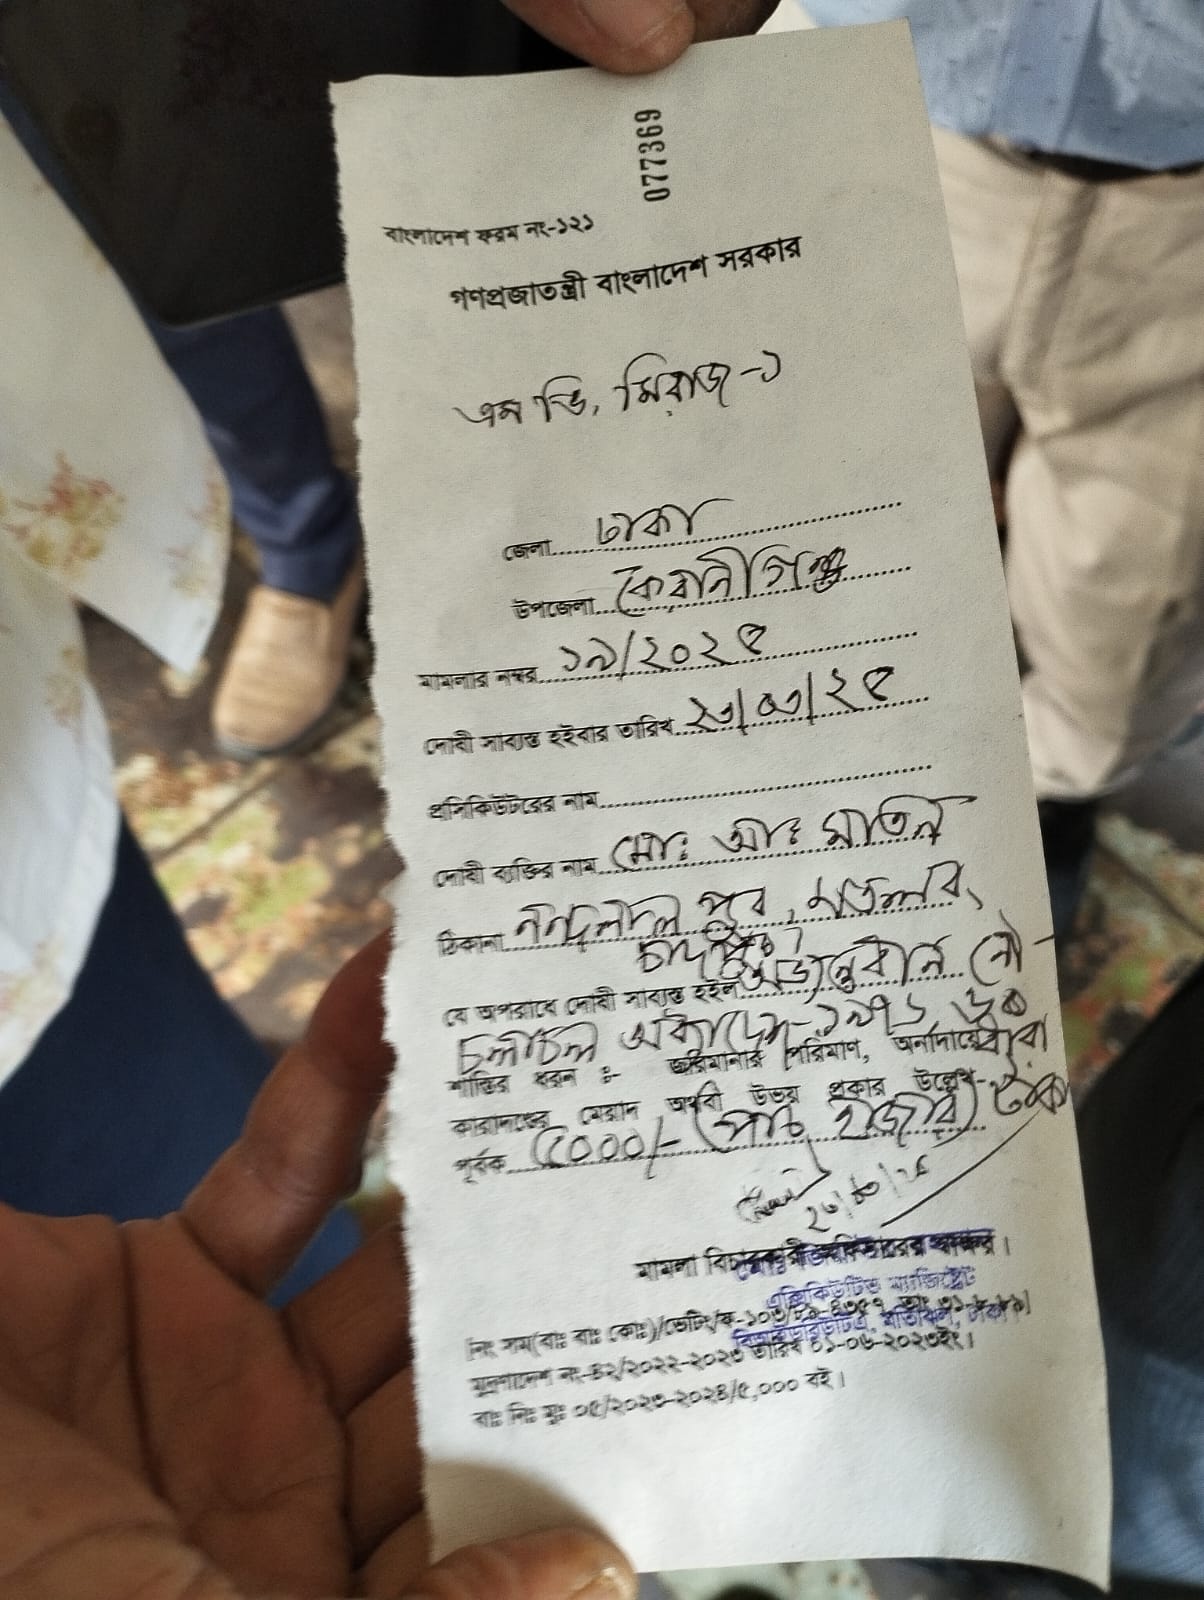 077369
বাংলাদেশ ফরম নং-১২১
গণপ্রজাতন্ত্রী বাংলাদেশ সরকার
এম ভি, মিরাজ-১
জেলা ঢাকা
উপজেলা কেরানীগঞ্জ
মামলার নম্বর ১৯/২০২৫
দোষী সাব্যস্ত হইবার তারিখ ২৩/০৩/২৫
প্রসিকিউটরের নাম
দোষী ব্যক্তির নাম মোঃ আঃ মতিন
ঠিকানা নন্দলালপুর, মতলব,
চাঁদপুর।
যে অপরাধে দোষী সাব্যস্ত হইল অভ্যন্তরীণ নৌ-
চলাচল অধ্যাদেশ-১৯৭৬
শাস্তির ধরন :- জরিমানার পরিমাণ, অনাদায়ে
কারাদণ্ডের মেয়াদ অথবা উভয় প্রকার উল্লেখ-
পূর্বক ৫০০০/- (পাঁচ হাজার) টাকা
২৩/০৩/২৫
মামলা বিচারকারী
এক্সিকিউটিভ ম্যাজিস্ট্রেট
বিআইডব্লিউটিএ, মতিঝিল, ঢাকা।
মুদ্রণাদেশ নং-৪২/২০২২-২০২৩ তারিখ ০১-০৬-২০২৩ইং।
বাঃ নিঃ মুঃ ০৫/২০২৩-২০২৪/৫,০০০ বই।